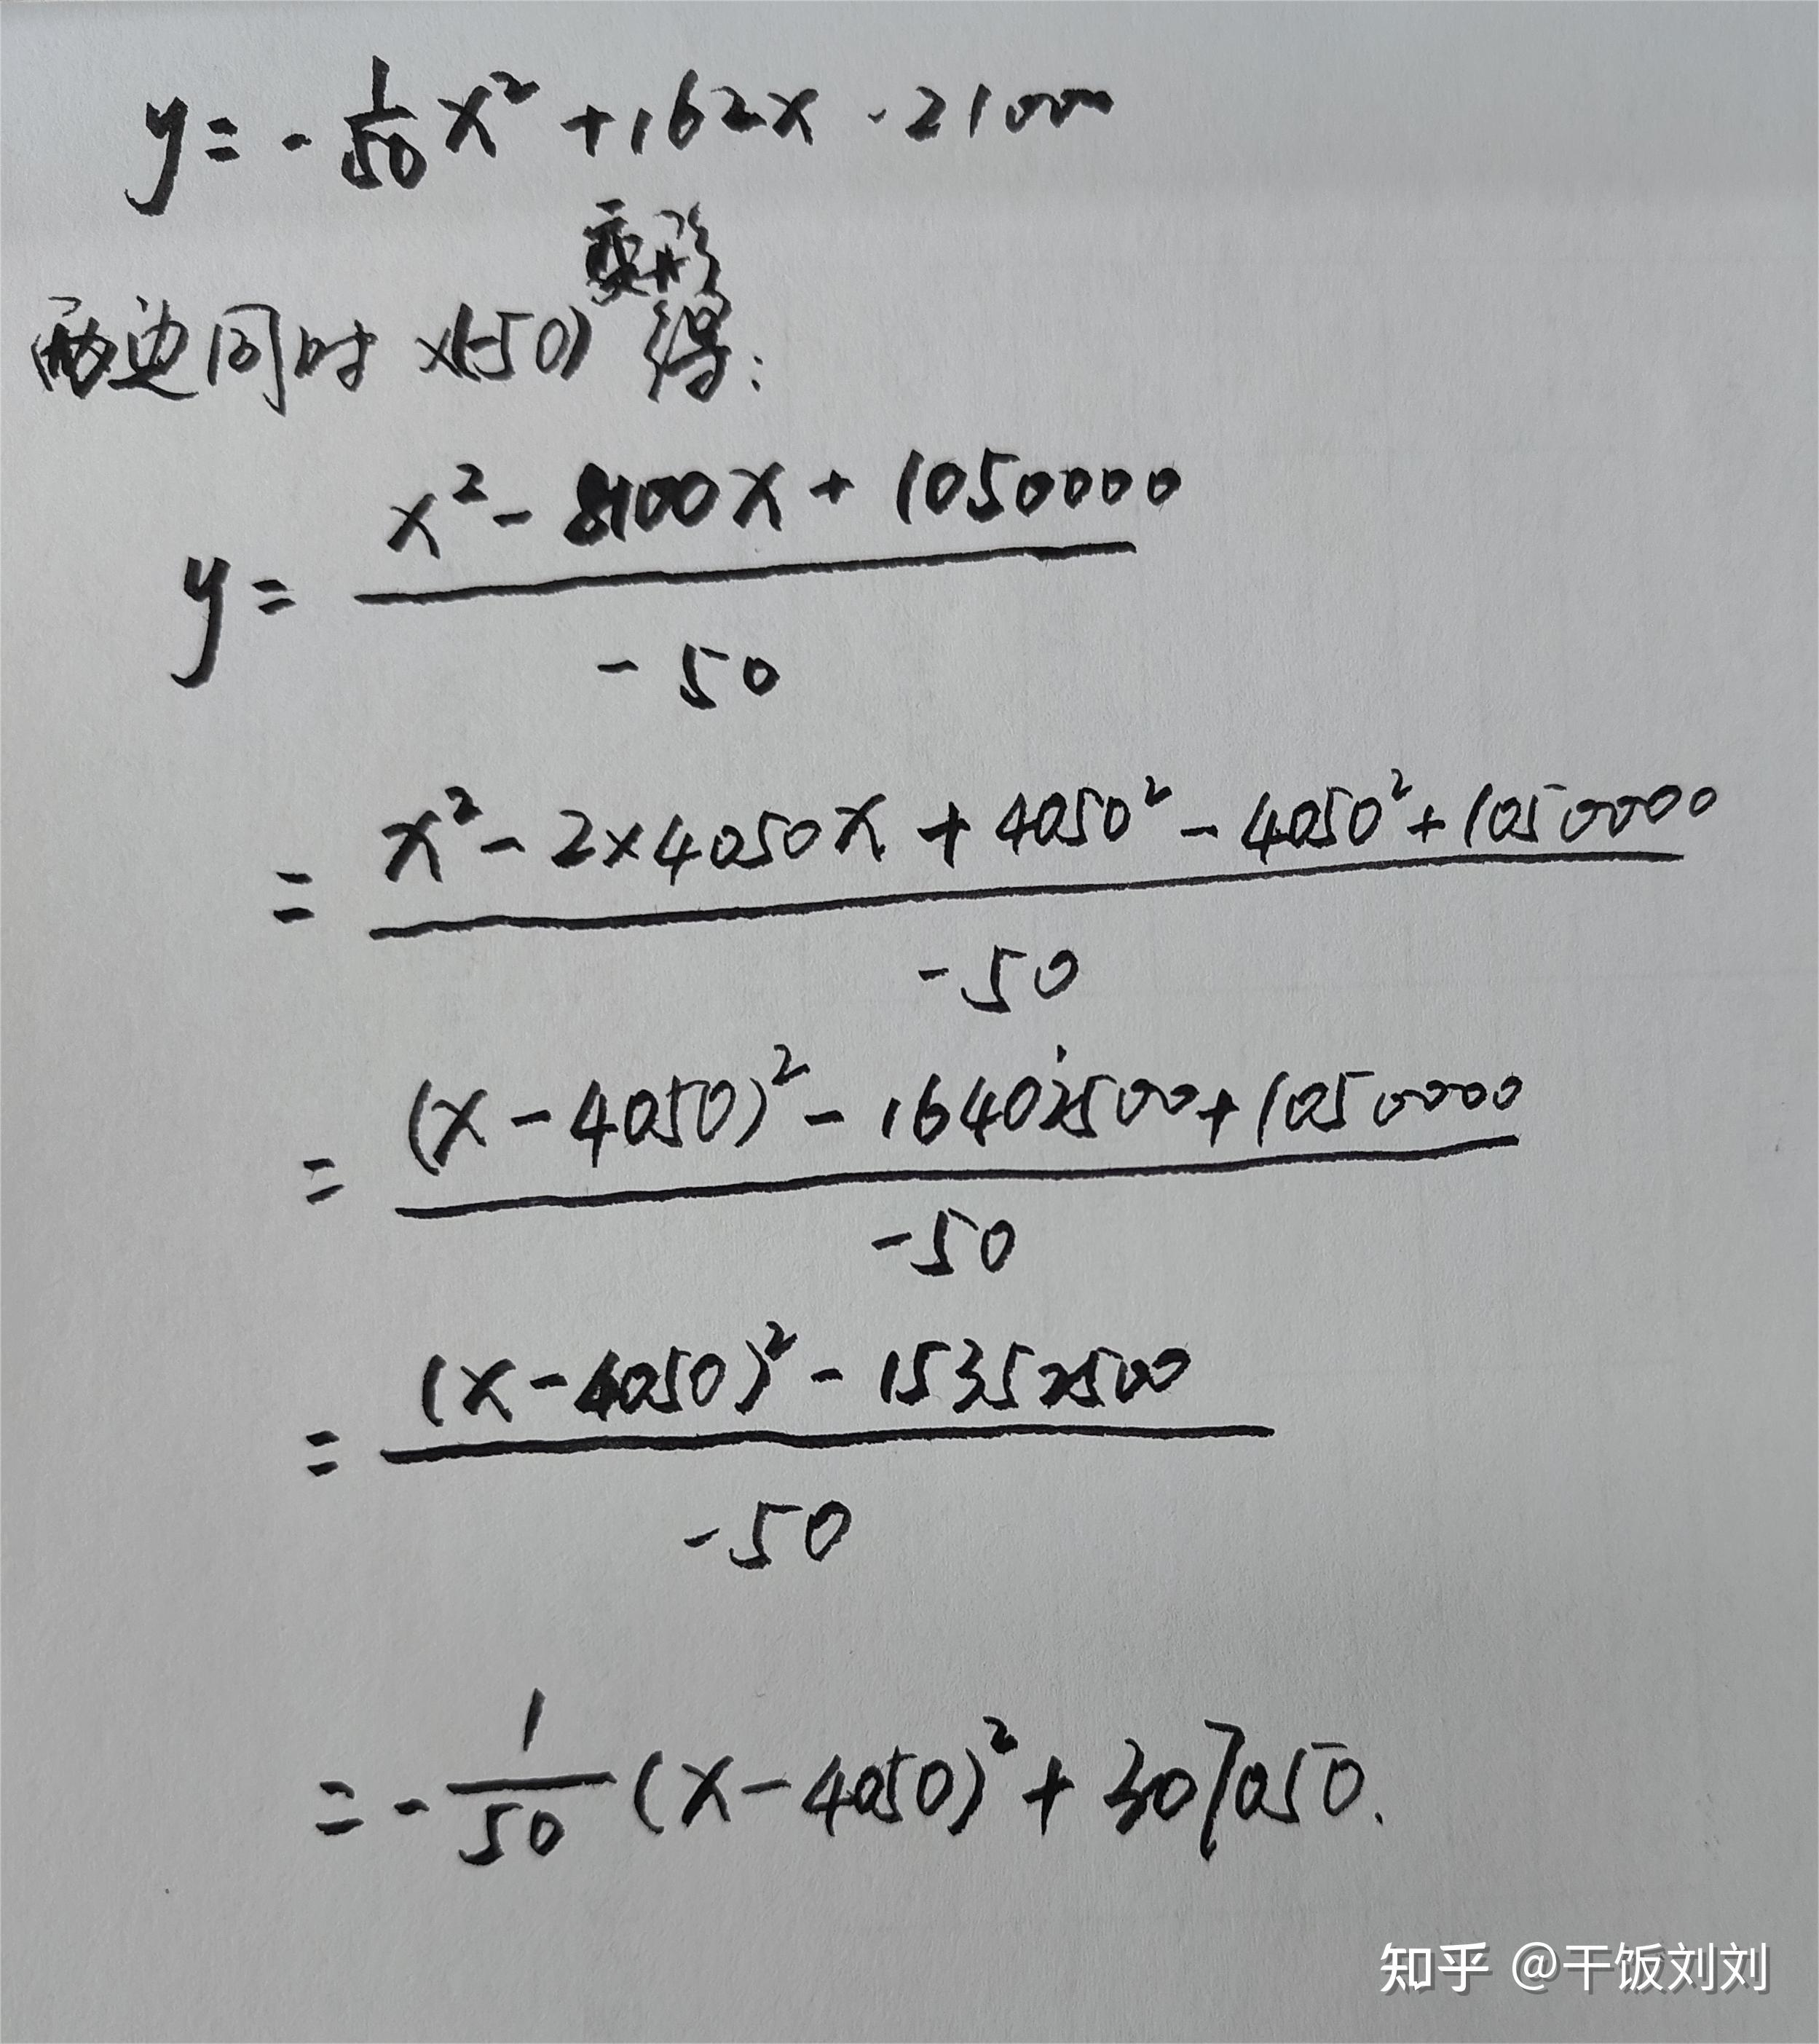 y = -1/50 x² + 162x - 21000
变形
两边同时 x(-50) 得:
x² - 8100x + 1050000
y =
-50
x² - 2×4050x + 4050² - 4050² + 1050000
=
-50
(x - 4050)² - 16402500 + 1050000
=
-50
(x - 4050)² - 15352500
=
-50
= -1/50 (x - 4050)² + 307050.
知乎 @干饭刘刘